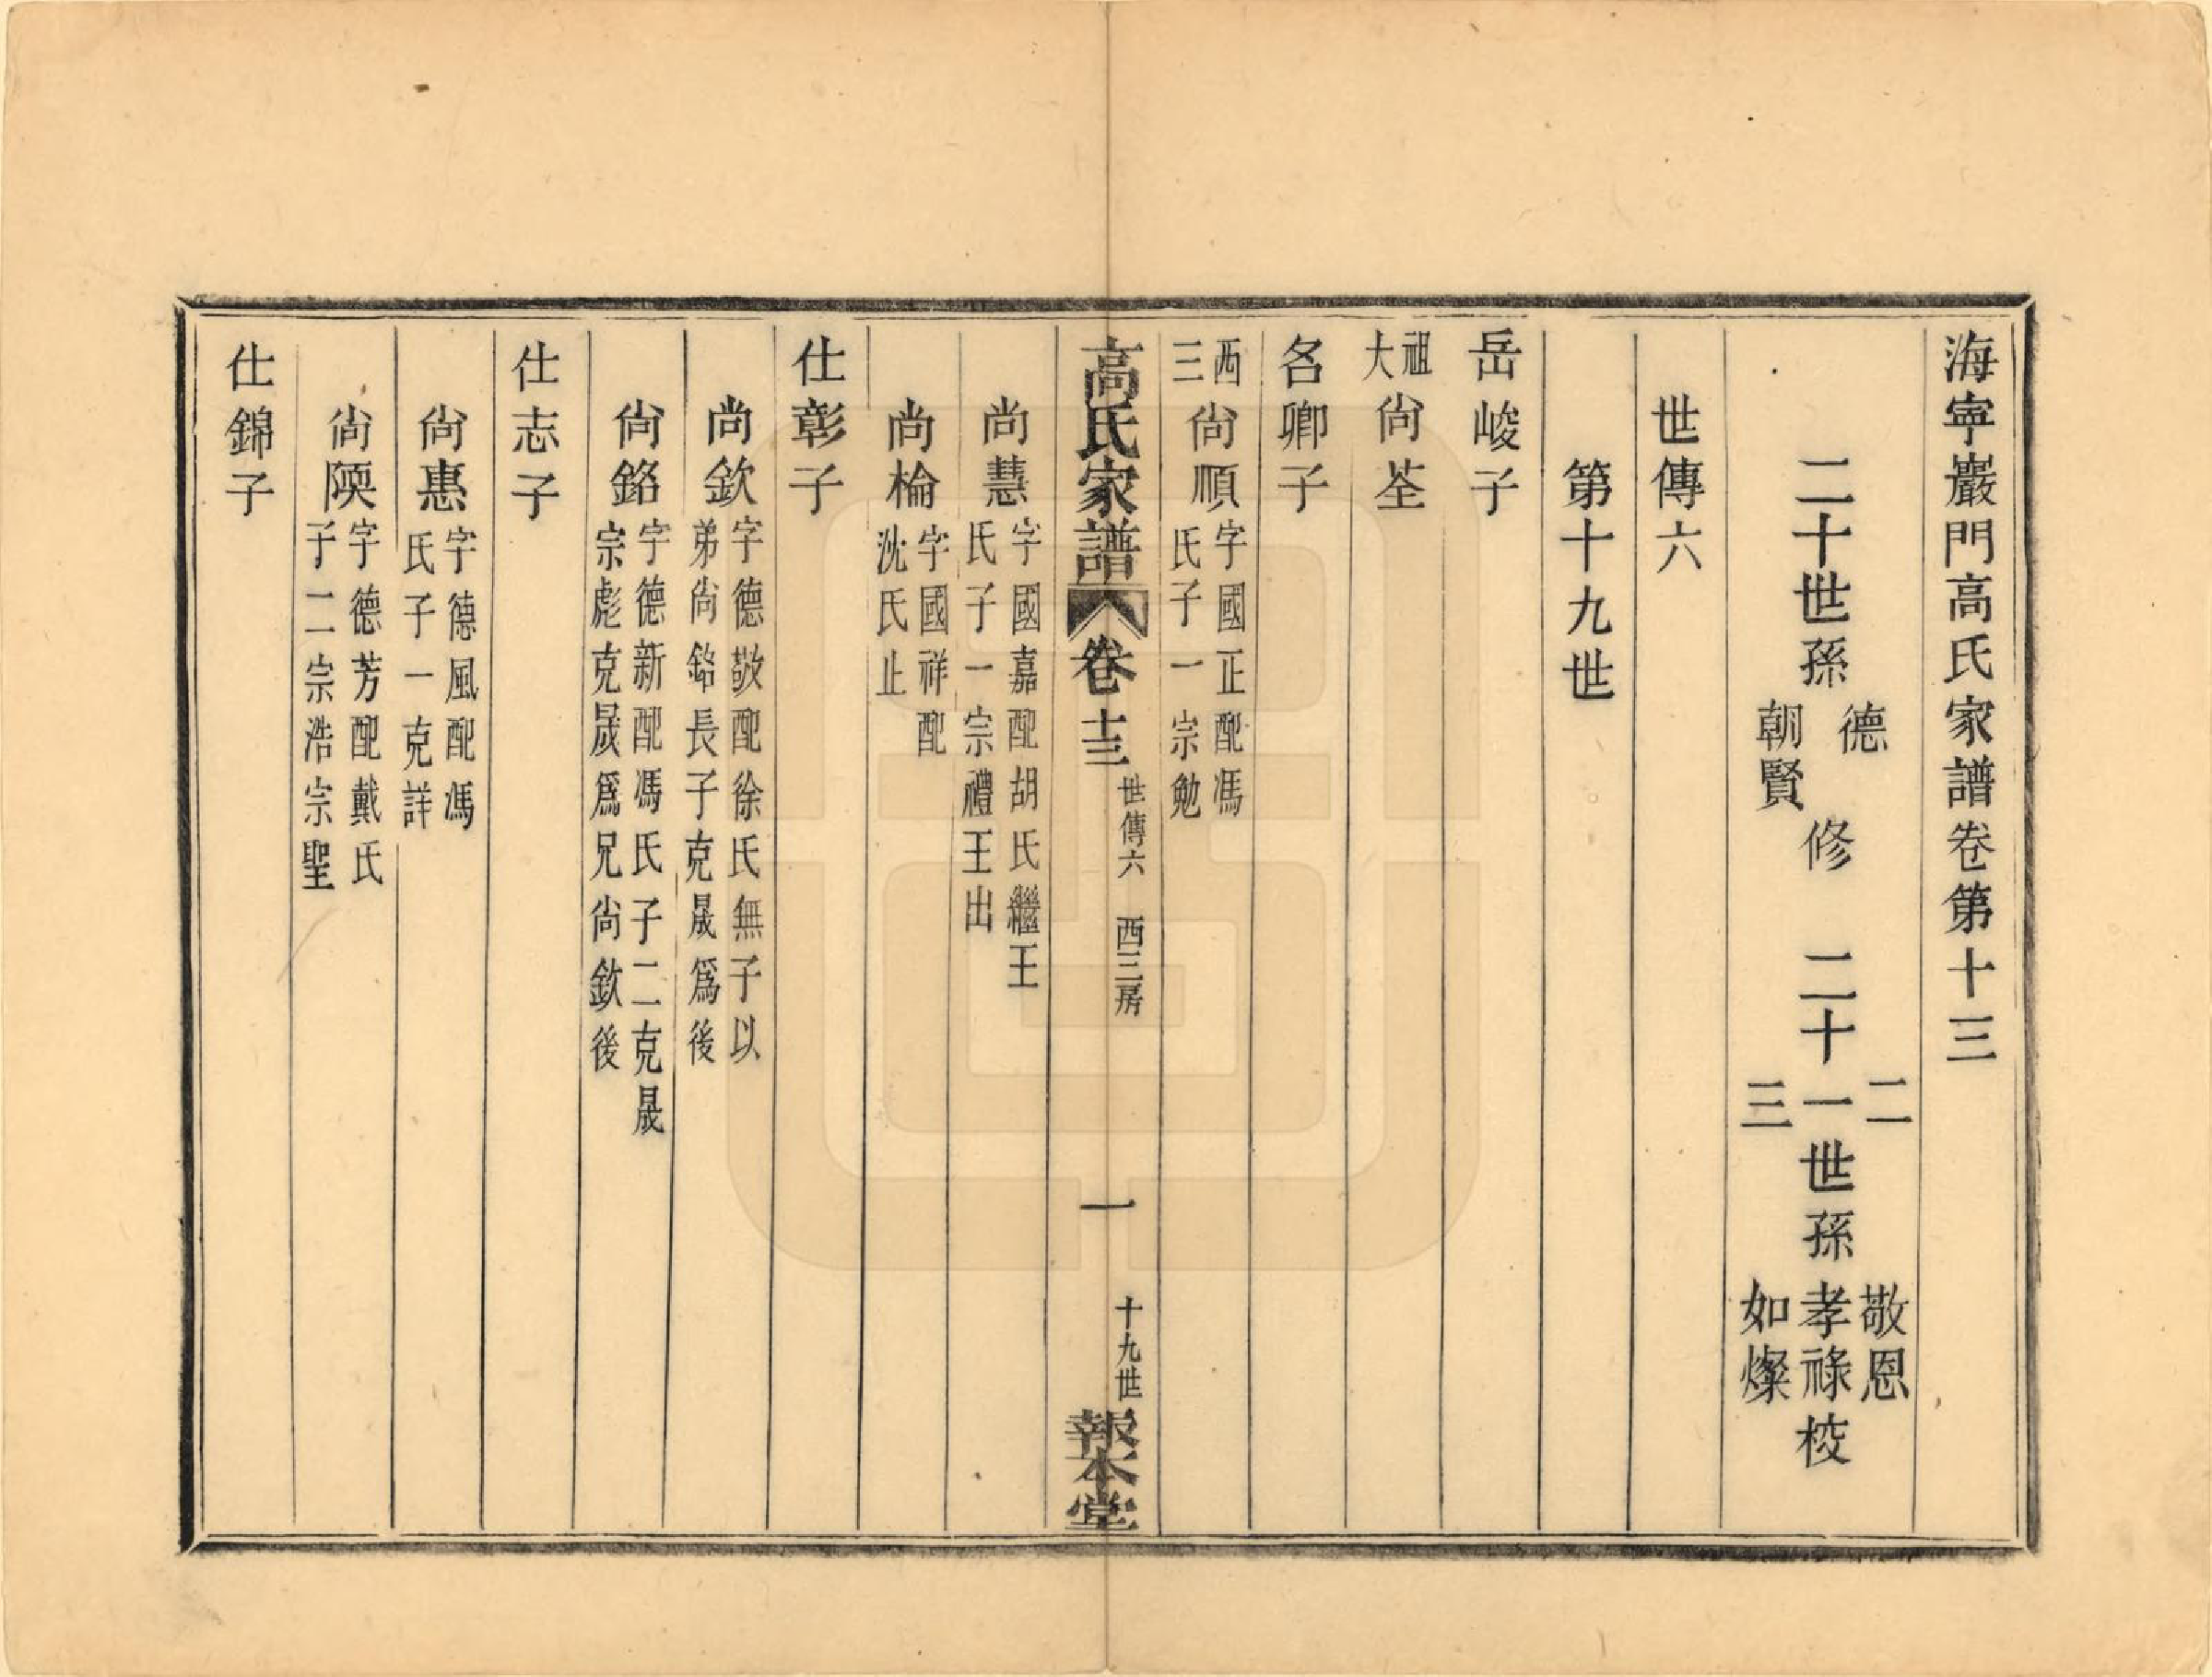 海寧巖門高氏家譜卷第十三
二十世孫德朝賢修 二十一二三世孫敬恩孝祿如燦校
世傳六
第十九世
岳峻子
祖大尙荃
名卿子
西三尙順字國正配馮氏子一宗勉
高氏家譜 卷十三 世傳六 西三房 一 十九世 報本堂
尙慧字國嘉配胡氏繼王氏子一宗禮王出
尙棆字國祥配沈氏止
仕彰子
尙欽字德敬配徐氏無子以弟尙銘長子克晟爲後
尙銘字德新配馮氏子二克晟宗彪克晟爲兄尙欽後
仕志子
尙惠字德風配馮氏子一克詳
尙陾字德芳配戴氏子二宗浩宗聖
仕錦子